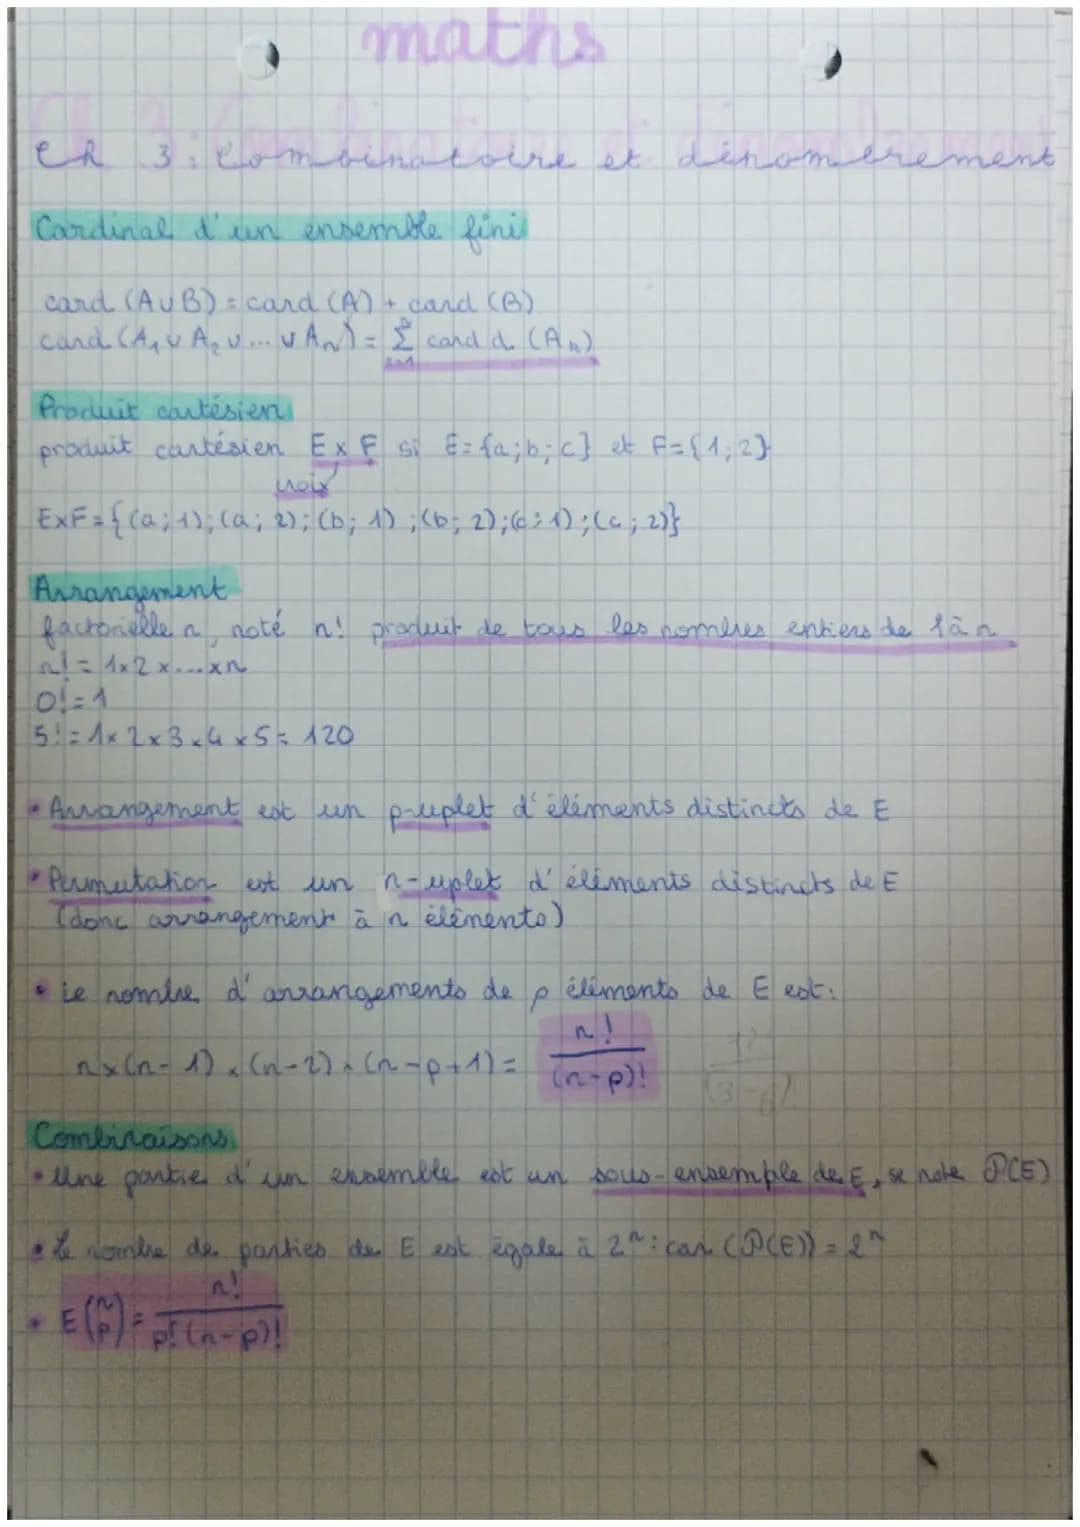 maths
Ch 3: Combinatoire et dénombrement
Cardinal d'un ensemble fini
card (A∪B) = card (A) + card (B)
card (A₁ ∪ A₂ ∪ ... ∪ Aₙ) = Σ card (Aₖ)
Produit cartésien
produit cartésien E x F si E = {a; b; c} et F = {1; 2}
croix
ExF = {(a; 1); (a; 2); (b; 1); (b; 2); (c; 1); (c; 2)}
Arrangement
factorielle n, noté n! produit de tous les nombres entiers de 1 à n
n! = 1x2 x ... x n
0! = 1
5! = 1x 2 x 3 x 4 x 5 = 120
• Arrangement est un p-uplet d'éléments distincts de E
• Permutation est un n-uplet d'éléments distincts de E
(donc arrangement à n éléments)
• le nombre d'arrangements de p éléments de E est:
n x (n-1) x (n-2) x (n-p+1) = n! / (n-p)!
Combinaisons
• Une partie d'un ensemble est un sous-ensemple de E, se note P(E)
• Le nombre de parties de E est égale à 2ⁿ : car (P(E)) = 2ⁿ
• E (n p) = n! / p! (n-p)!